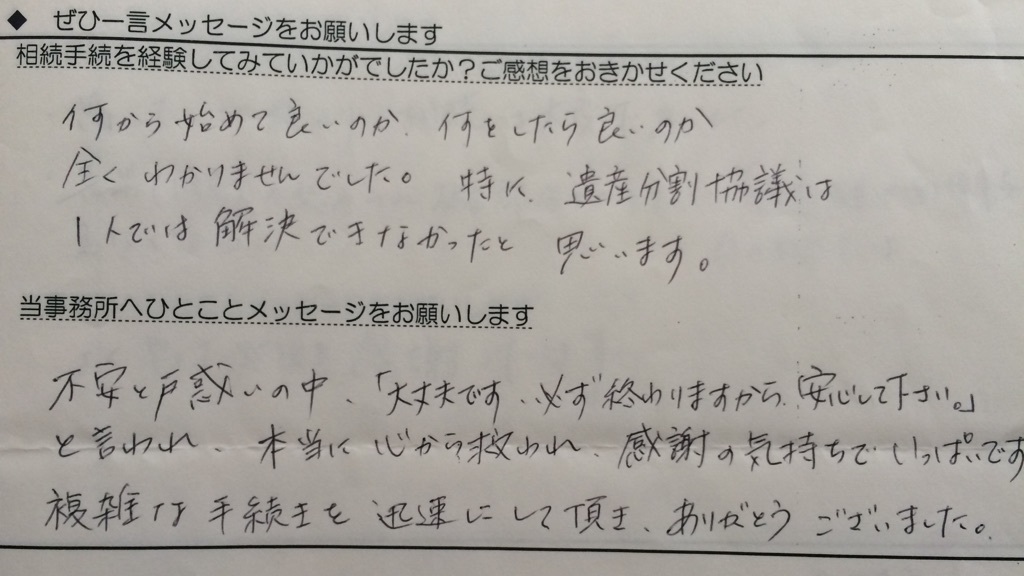 ◆ ぜひ一言メッセージをお願いします
相続手続を経験してみていかがでしたか？ご感想をおきかせください
何から始めて良いのか、何をしたら良いのか
全くわかりませんでした。特に、遺産分割協議は
1人では解決できなかったと思います。
当事務所へひとことメッセージをお願いします
不安と戸惑いの中、「大丈夫です、必ず終わりますから、安心して下さい。」
と言われ、本当に心から救われ、感謝の気持ちでいっぱいです
複雑な手続きを迅速にして頂き、ありがとうございました。